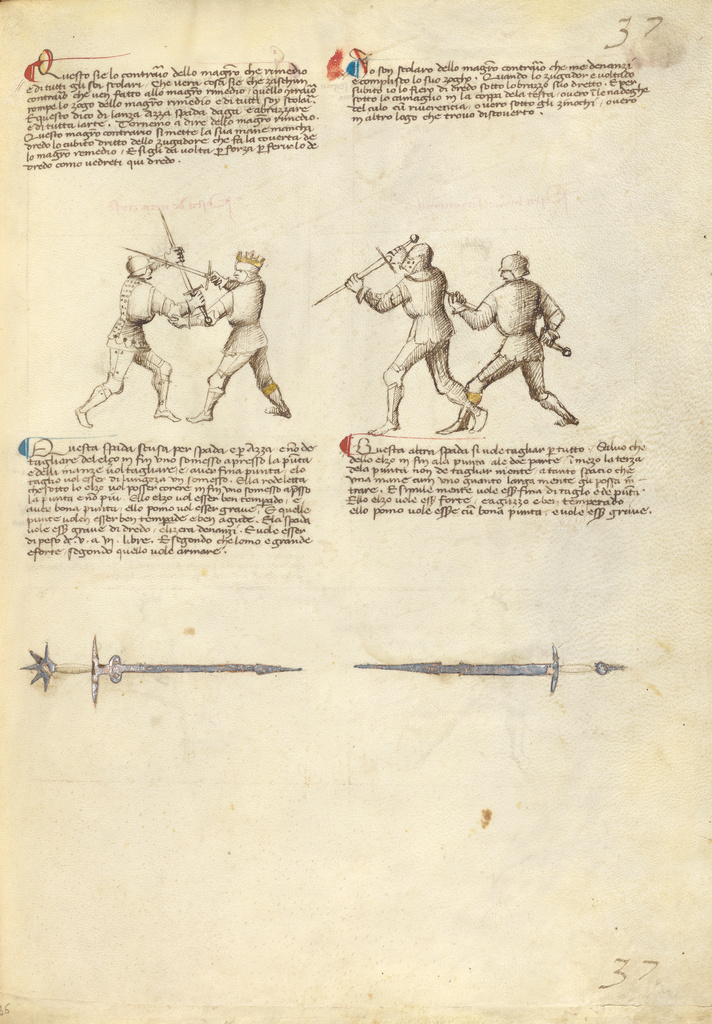 37
Questo sie lo contrario dello magistro che rimedio
e di tutti gli soi scolari. Che vera cosa sie che zaschun
contrario che ven fatto allo magistro rimedio, quello contrario
rompe lo zogo dello magistro rimedio e di tutti soy scolari.
E questo dico di lanza, Azza spada daga, e abrazzare
e di tutta larte. Tornemo a dire dello magistro rimedio.
Questo magistro contrario si mette la sua mane mancha
dredo lo cubito dritto dello zugadore che fa la coverta de
lo magistro remedio, E sigli da volta per forza per ferirlo de
dredo como vedreti qui dredo.
Io son scolaro dello magistro contrario che me denanzi
e complisco lo suo zogho. Quando lo zugador e voltado
subito io lo fiero di dredo sotto lo brazzo suo dretto, E per
sotto lo camaglio in la coppa dela testa, overo in le nadeghe
del culo cum riverencia, overo sotto gli zinochi, overo
in altro logo che trovo discoverto.
Questa spada si usa per spada, e per Azza, e no de
tagliare del elzo in fin uno somesso apresso la punta
e delli inanze vol tagliare, e aver fina punta, e lo
taglio vol esser di lungeza un somesso. E la rodeletta
che sotto lo elzo vol posser corere in fin uno somesso apresso
la punta e no piu. E llo elzo vol esser ben temprado, e
aver bona punta, e llo pomo vol esser grave. E quelle
punte volen esser ben temprade e ben agude. E la spada
vole esser grave di dredo, e lizera denanzi. E vole esser
di peso de .v. a .vi. libre. E segondo che lomo e grande
e forte, segondo quello vole armare.
Questa altra spada si vole tagliar per tutto, Salvo che
dello elzo in fin ala punta ale doe parte in mezo la terza
dela punta non de tagliar niente, a tanto spacio che
una mane cum uno guanto larga mente gli possa in
trare. E simile mente vole esser fina di taglo e de punta.
E llo elzo vole esser forte, e aguzzo e ben temperado
e llo pomo vole esser cum bona punta, e vole esser grave.
37